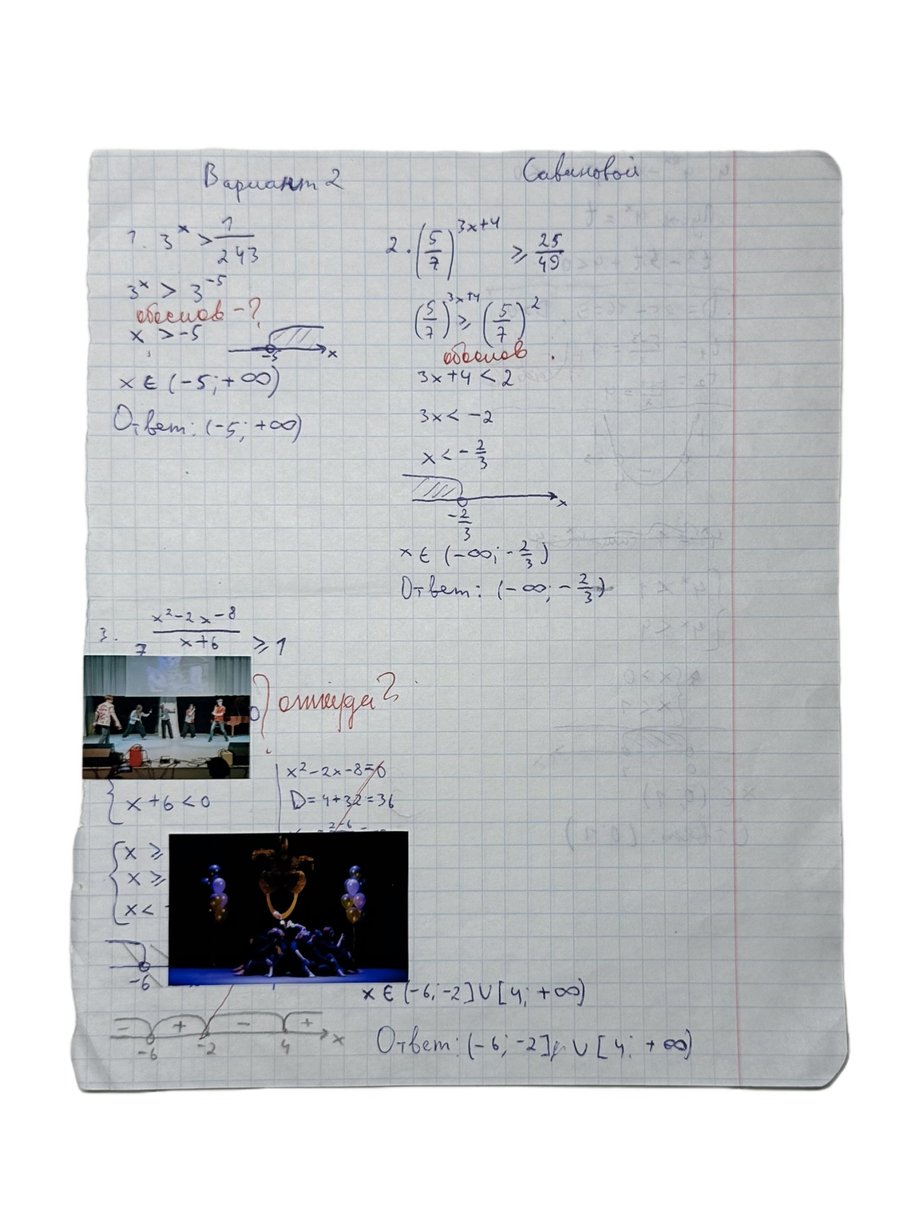 Вариант 2
Савиновой
1. 3^x > 1/243
3^x > 3^-5
обоснов-?
x > -5
-5 x
x ∈ (-5; +∞)
Ответ: (-5; +∞)
2. (5/7)^(3x+4) ⩾ 25/49
(5/7)^(3x+4) ⩾ (5/7)^2
обоснов.
3x+4 < 2
3x < -2
x < -2/3
x
-2/3
x ∈ (-∞; -2/3)
Ответ: (-∞; -2/3)
3. 7^((x²-2x-8)/(x+6)) ⩾ 1
откуда?
x²-2x-8=0
x+6<0
D=4+32=36
x ⩾
x ⩾
x <
-6
x ∈ (-6; -2] ∪ [4; +∞)
- + - +
-6 -2 4 x
Ответ: (-6; -2] ∪ [4; +∞)